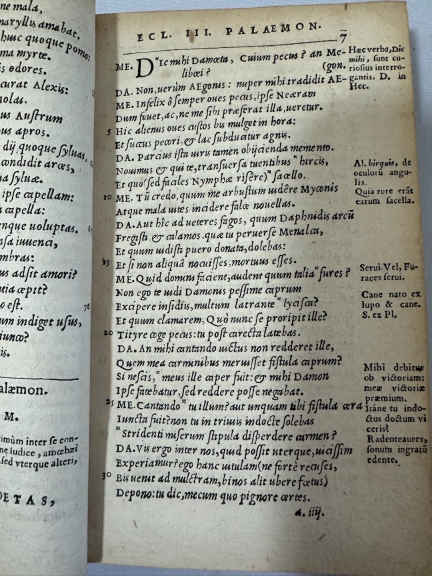 ne mala,
maryllis amabat.
huc quoque pomo:
ma myrte.
is odores.
curat Alexis:
olas.
us Austrum
us apros.
dij quoque syluas,
condidit arces,
na syluæ.
, ipse capellam:
a capella:
enque uoluptas.
sa iuuenci,
mbras:
us adsit amori?
tia cœpit?
o est.
m indiget usus,
iunco?
is.
alæmon.
M.
imùm inter se con-
ne iudice, amœbæi
sed vterque alteri,
OETAS,
ECL. III. PALAEMON. 7
ME. Dic mihi Damœta, Cuium pecus? an Me-
libœi? (gon.
DA. Non, uerùm Aegonis: nuper mihi tradidit AE-
ME. Infelix ô semper oues pecus. ipse Neæram
Dum fouet, ac, ne me sibi præferat illa, ueretur.
5 Hic alienus oues custos bis mulget in hora:
Et succus pecori, & lac subducitur agnis.
DA. Parcius ista uiris tamen obijcienda memento.
Nouimus & qui te, transuersa tuentibus hircis,
Et quo (sed faciles Nymphæ risere) sacello.
10 ME. Tū credo, quum me arbustum uidêre Myconis
Atque mala uites incidere falce nouellas.
DA. Aut hîc ad ueteres fagos, quum Daphnidis arcū
Fregisti & calamos. quæ tu peruerse Menalca,
Et quum uidisti puero donata, dolebas:
15 Et si non aliquâ nocuisses, mortuus esses.
ME. Quid domini faciēt, audent quum talia fures?
Non ego te uidi Damonis pessime caprum
Excipere insidiis, multum latrante lycisca?
Et quum clamarem, Quò nunc se proripit ille?
20 Tityre coge pecus: tu post carecta latebas.
DA. An mihi cantando uictus non redderet ille,
Quem mea carminibus meruisset fistula caprum?
Si nescis, meus ille caper fuit: & mihi Damon
Ipse fatebatur, sed reddere posse negabat.
25 ME. Cantando tu illum? aut unquam tibi fistula cera
Iuncta fuit? non tu in triuiis indocte solebas
Stridenti miserum stipula disperdere carmen?
DA. Vis ergo inter nos, quid possit uterque, uicissim
Experiamur? ego hanc uitulam (ne fortè recuses,
30 Bis uenit ad mulctram, binos alit ubere fœtus)
Depono: tu dic, mecum quo pignore certes.
a. iiij.
Hæc verba, Dic
mihi, sunt cu-
riosius interro-
gantis. D. in
Hec.
Al. hirquis, de
oculorū angu-
lis.
Quia rure erāt
earum sacella.
Serui. Vel, Fu-
races serui.
Cane nato ex
lupo & cane.
S. ex Pl.
Mihi debitus
ob victoriam:
meæ victoriæ
præmium.
Tūne tu indo-
ctus doctum vi
ceris?
Radente aures,
sonum ingratū
edente.